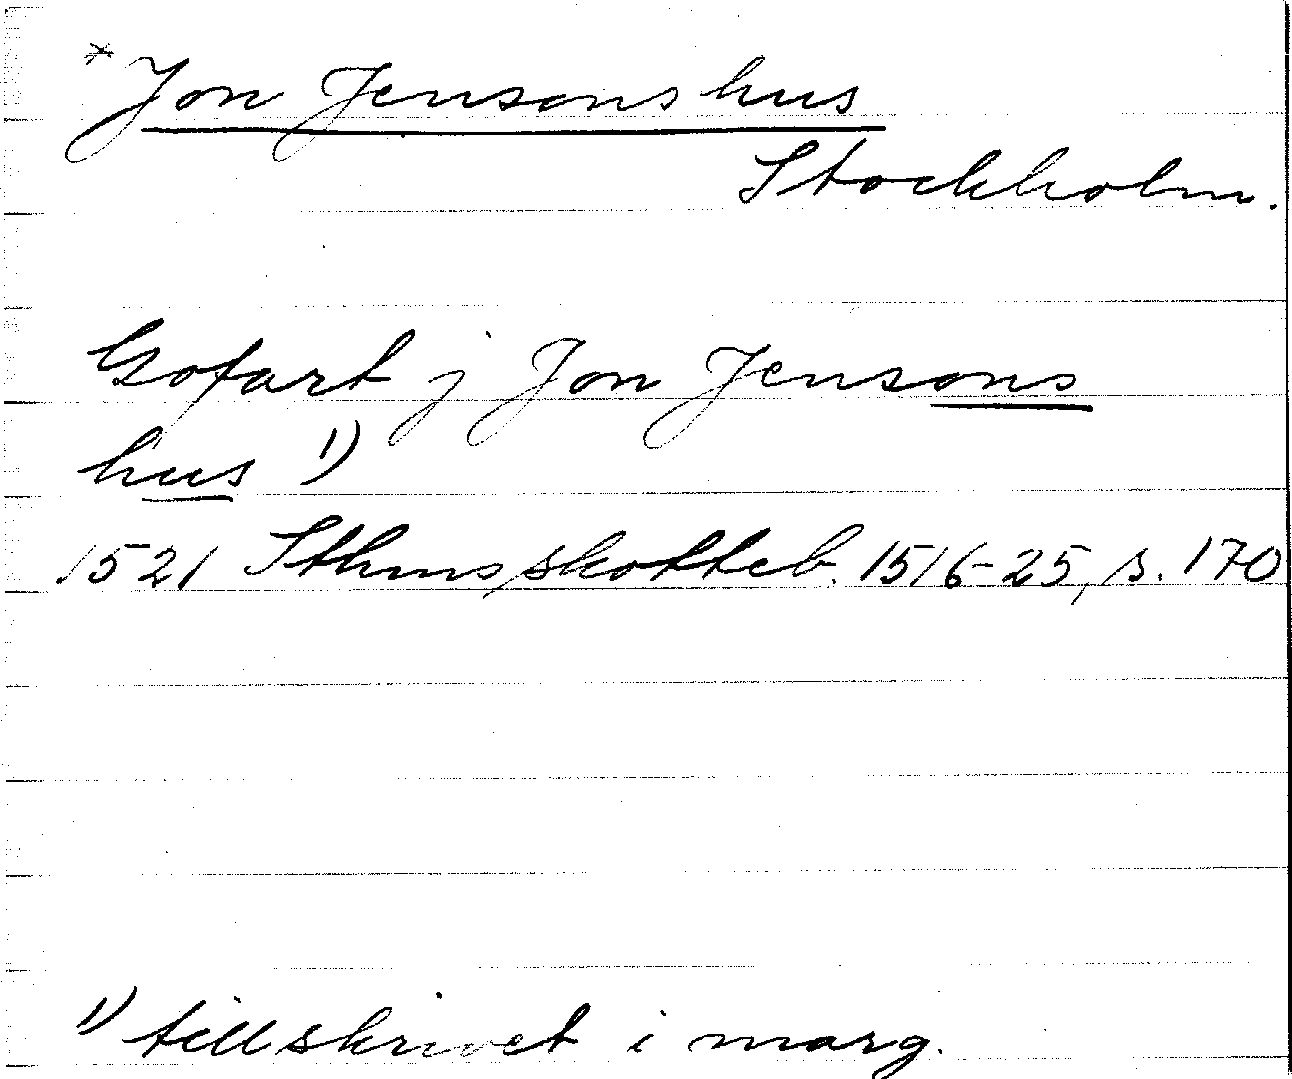 * Jon Jensons hus
Stockholm.
Gofart j Jon Jensons
hus 1)
1521 Sthms skotteb. 1516-25, s. 170
1) tillskrivet i marg.